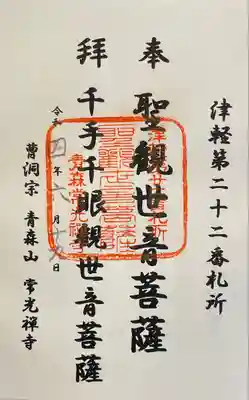 津軽第二十二番札所
奉 聖観世音菩薩
拝 千手千眼観世音菩薩
令和四年六月十五日
曹洞宗 青森山 常光禅寺